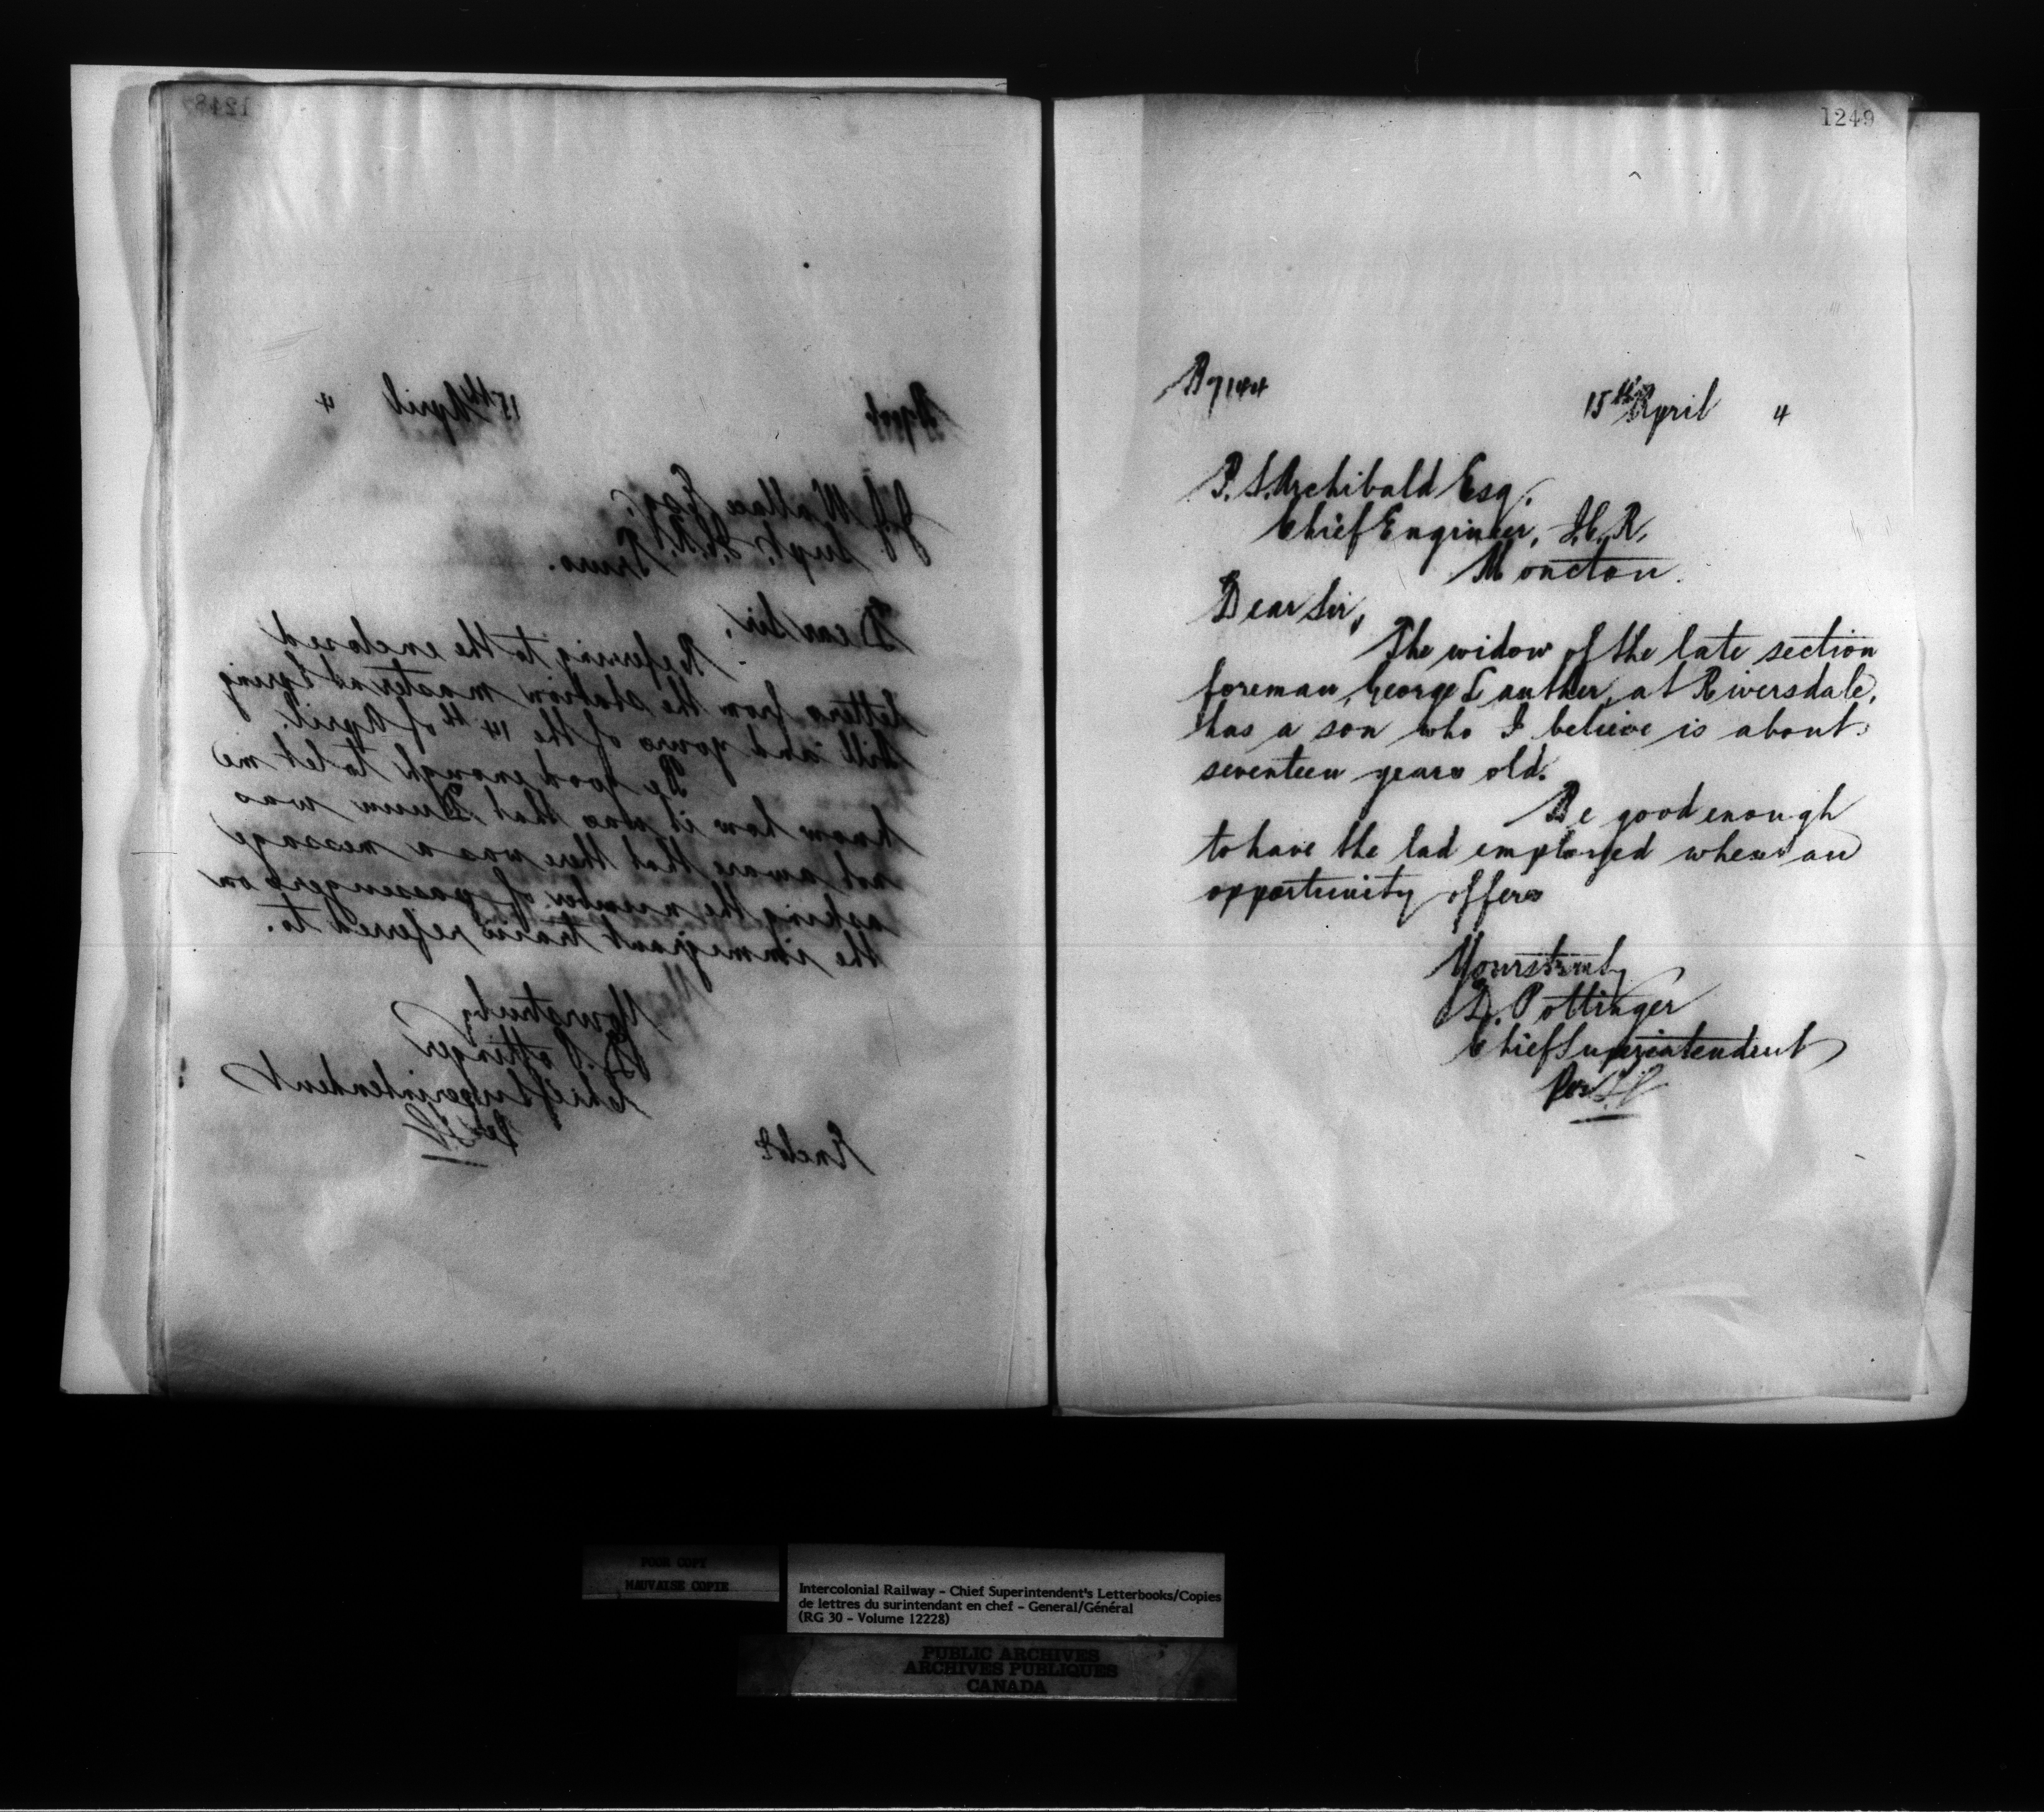 1248
15th April 4
J.J. Wallace Esq.
Supt. I.C.R.
Truro.
Dear Sir,
Referring to the enclosed
letters from the station master at Spring
hill and yours of the 14th of April.
Be good enough to let me
know how it was that Dunn was
not aware that there was a message
asking the number of passengers on
the immigrant train referred to.
Yours truly
D. Pottinger
Chief Superintendent
Per
Encls
1249
A7144
15th April 4
P. S. Archibald Esq.
Chief Engineer, I.C.R,
Moncton.
Dear Sir,
The widow of the late section
foreman, George Lauther, at Riversdale,
has a son who I believe is about
seventeen years old.
Be good enough
to have the lad employed when an
opportunity offers
Yours truly
D. Pottinger
Chief Superintendent
Per
POOR COPY
MAUVAISE COPIE
Intercolonial Railway - Chief Superintendent's Letterbooks/Copies
de lettres du surintendant en chef - General/Général
(RG 30 - Volume 12228)
PUBLIC ARCHIVES
ARCHIVES PUBLIQUES
CANADA